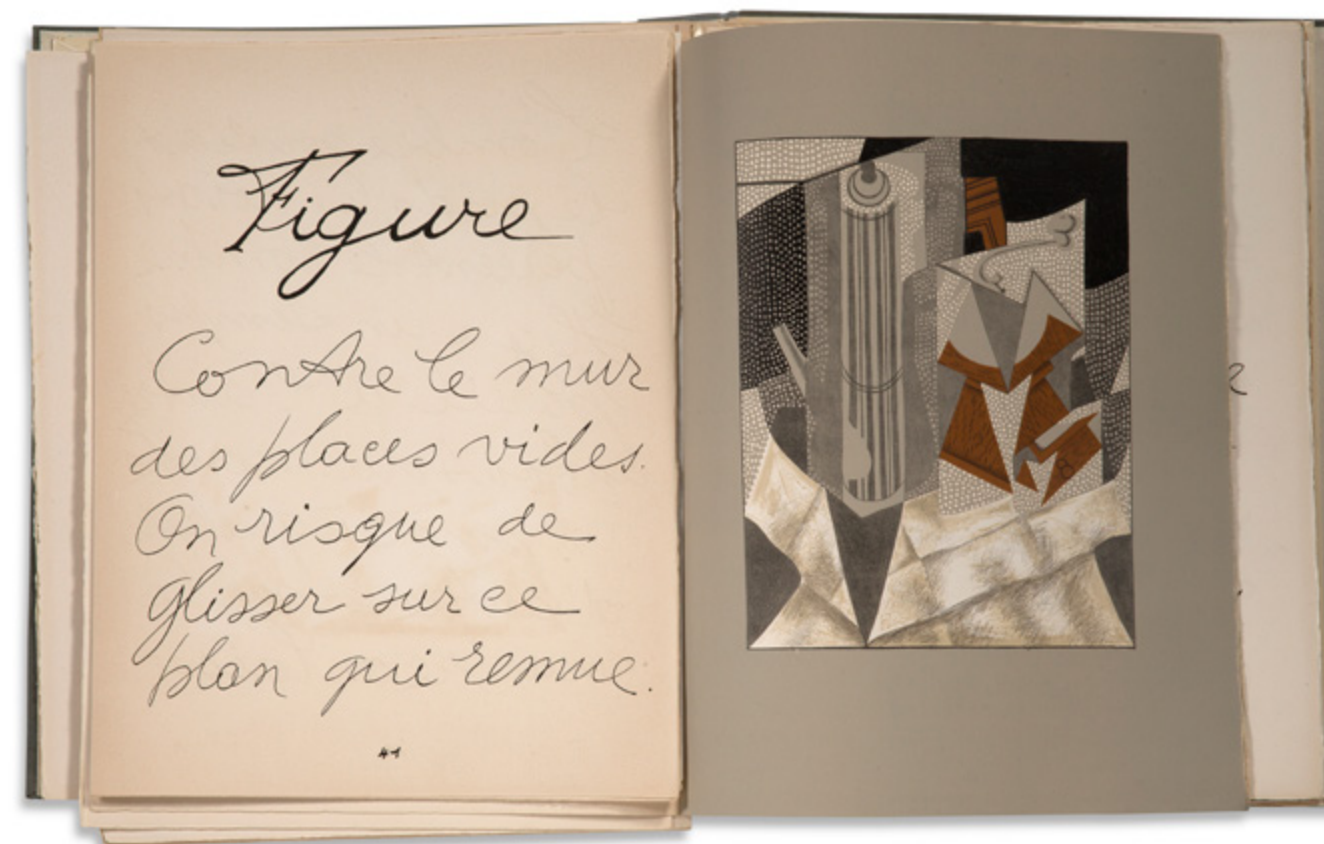 Figure
Contre le mur
des places vides.
On risque de
glisser sur ce
plan qui remue.
41
8